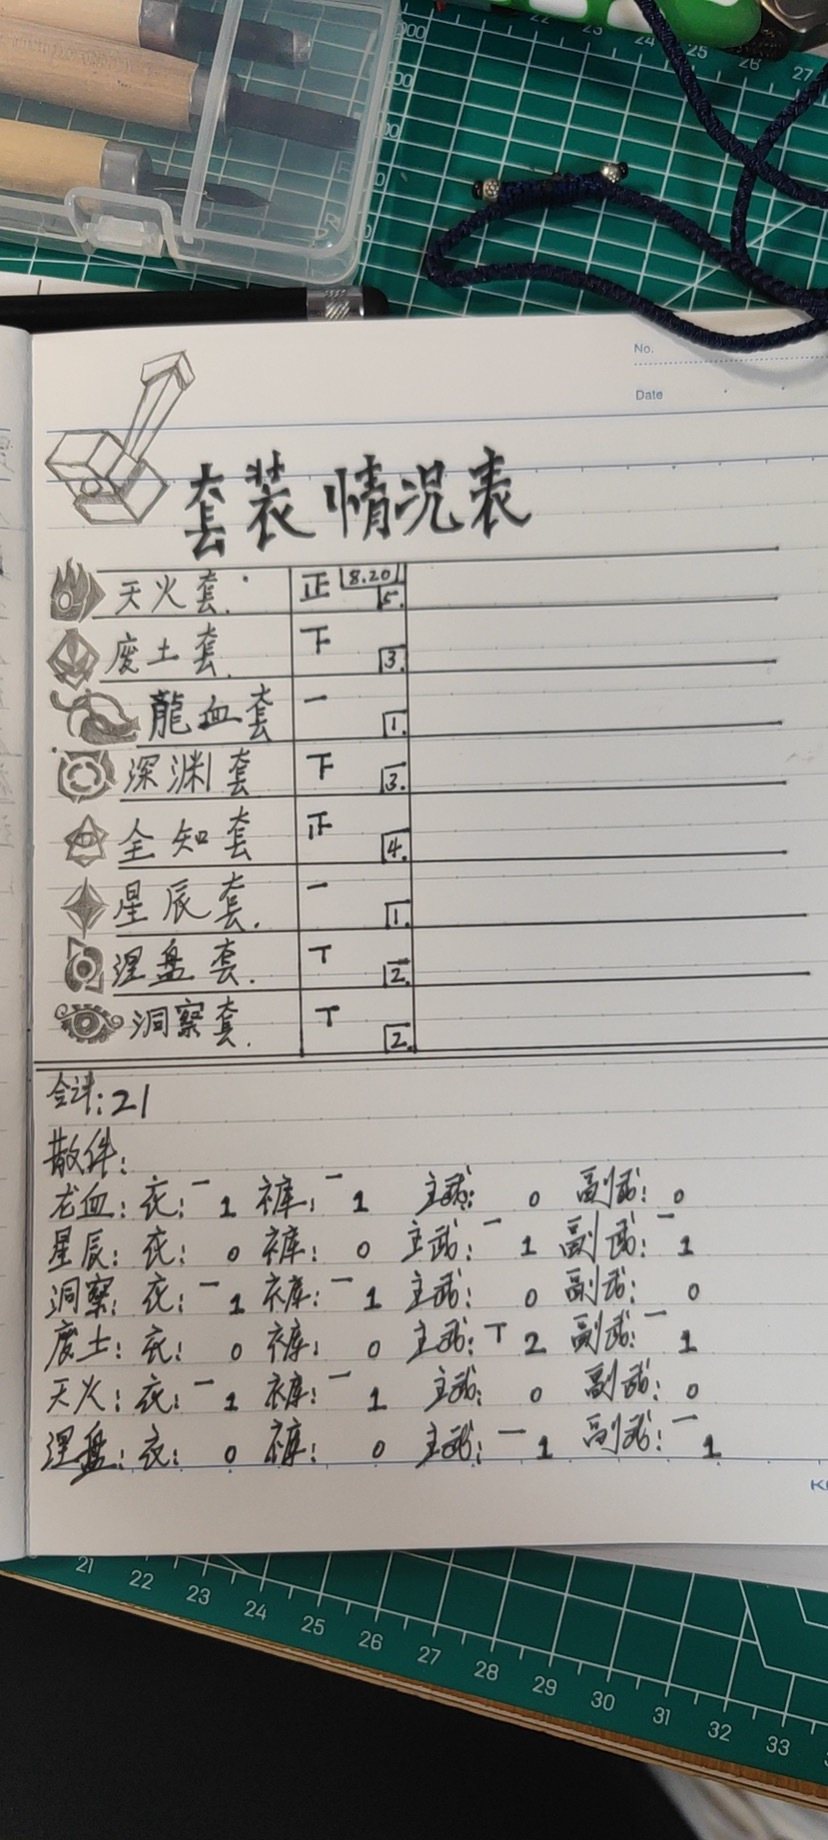 22 23 24 25 26 27
No.
Date
套装情况表
天火套. 正 8.20 5.
废土套. 下 3.
龍血套 一 1.
深渊套 下 3.
全知套 正 4.
星辰套. 一 1.
涅盘套. T 2.
洞察套. T 2.
合计:21
散件:
龙血:衣:一 1 裤:一 1 主武: 0 副武: 0
星辰:衣: 0 裤: 0 主武:一 1 副武:一 1
洞察:衣:一 1 裤:一 1 主武: 0 副武: 0
废土:衣: 0 裤: 0 主武:T 2 副武:一 1
天火:衣:一 1 裤:一 1 主武: 0 副武: 0
涅盘:衣: 0 裤: 0 主武:一 1 副武:一 1
21 22 23 24 25 26 27 28 29 30 31 32 33